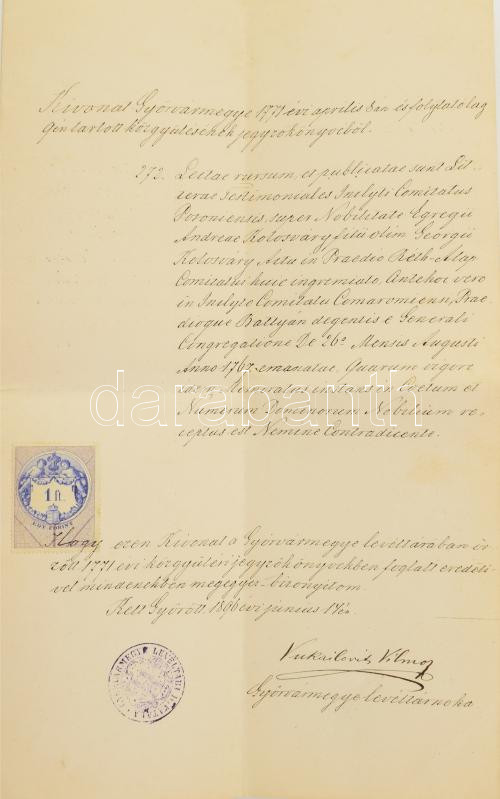 Kivonat Győrvármegye 1771 évi április 8án és folytatólag
tartott közgyűléseinek jegyzőkönyvéből.
272. Lectae rursum, et publicatae sunt Lit-
terae Testimoniales Inclyti Comitatus
Posoniensis, super Nobilitate Egregii
Andreae Kolosváry filii olim Georgii
Kolosváry Actu in Praedio Réth-Alap
Comitatui huic ingremiato, Antehac vero
in Inclyto Comitatu Comaromiensi, Prae-
dioque Battyán degentis e Generali
Congregatione De 26a Mensis Augusti
Anno 1767 emanatae, Quarum vigore
Memoratus instans in Coetum et
Numerum Dominorum Nobilium re-
ceptus est Nemine Contradicente.
1 ft.
EGY FORINT
Hogy ezen Kivonat a Győrvármegye levéltárában őr-
zött 1771 évi közgyűlési jegyzőkönyvekben foglalt eredeti-
vel mindenekben megegyez - bizonyítom.
Kelt Győrött 1896 évi június
Vukailovits Vilmos
Győrvármegye levéltárnoka
darabanth